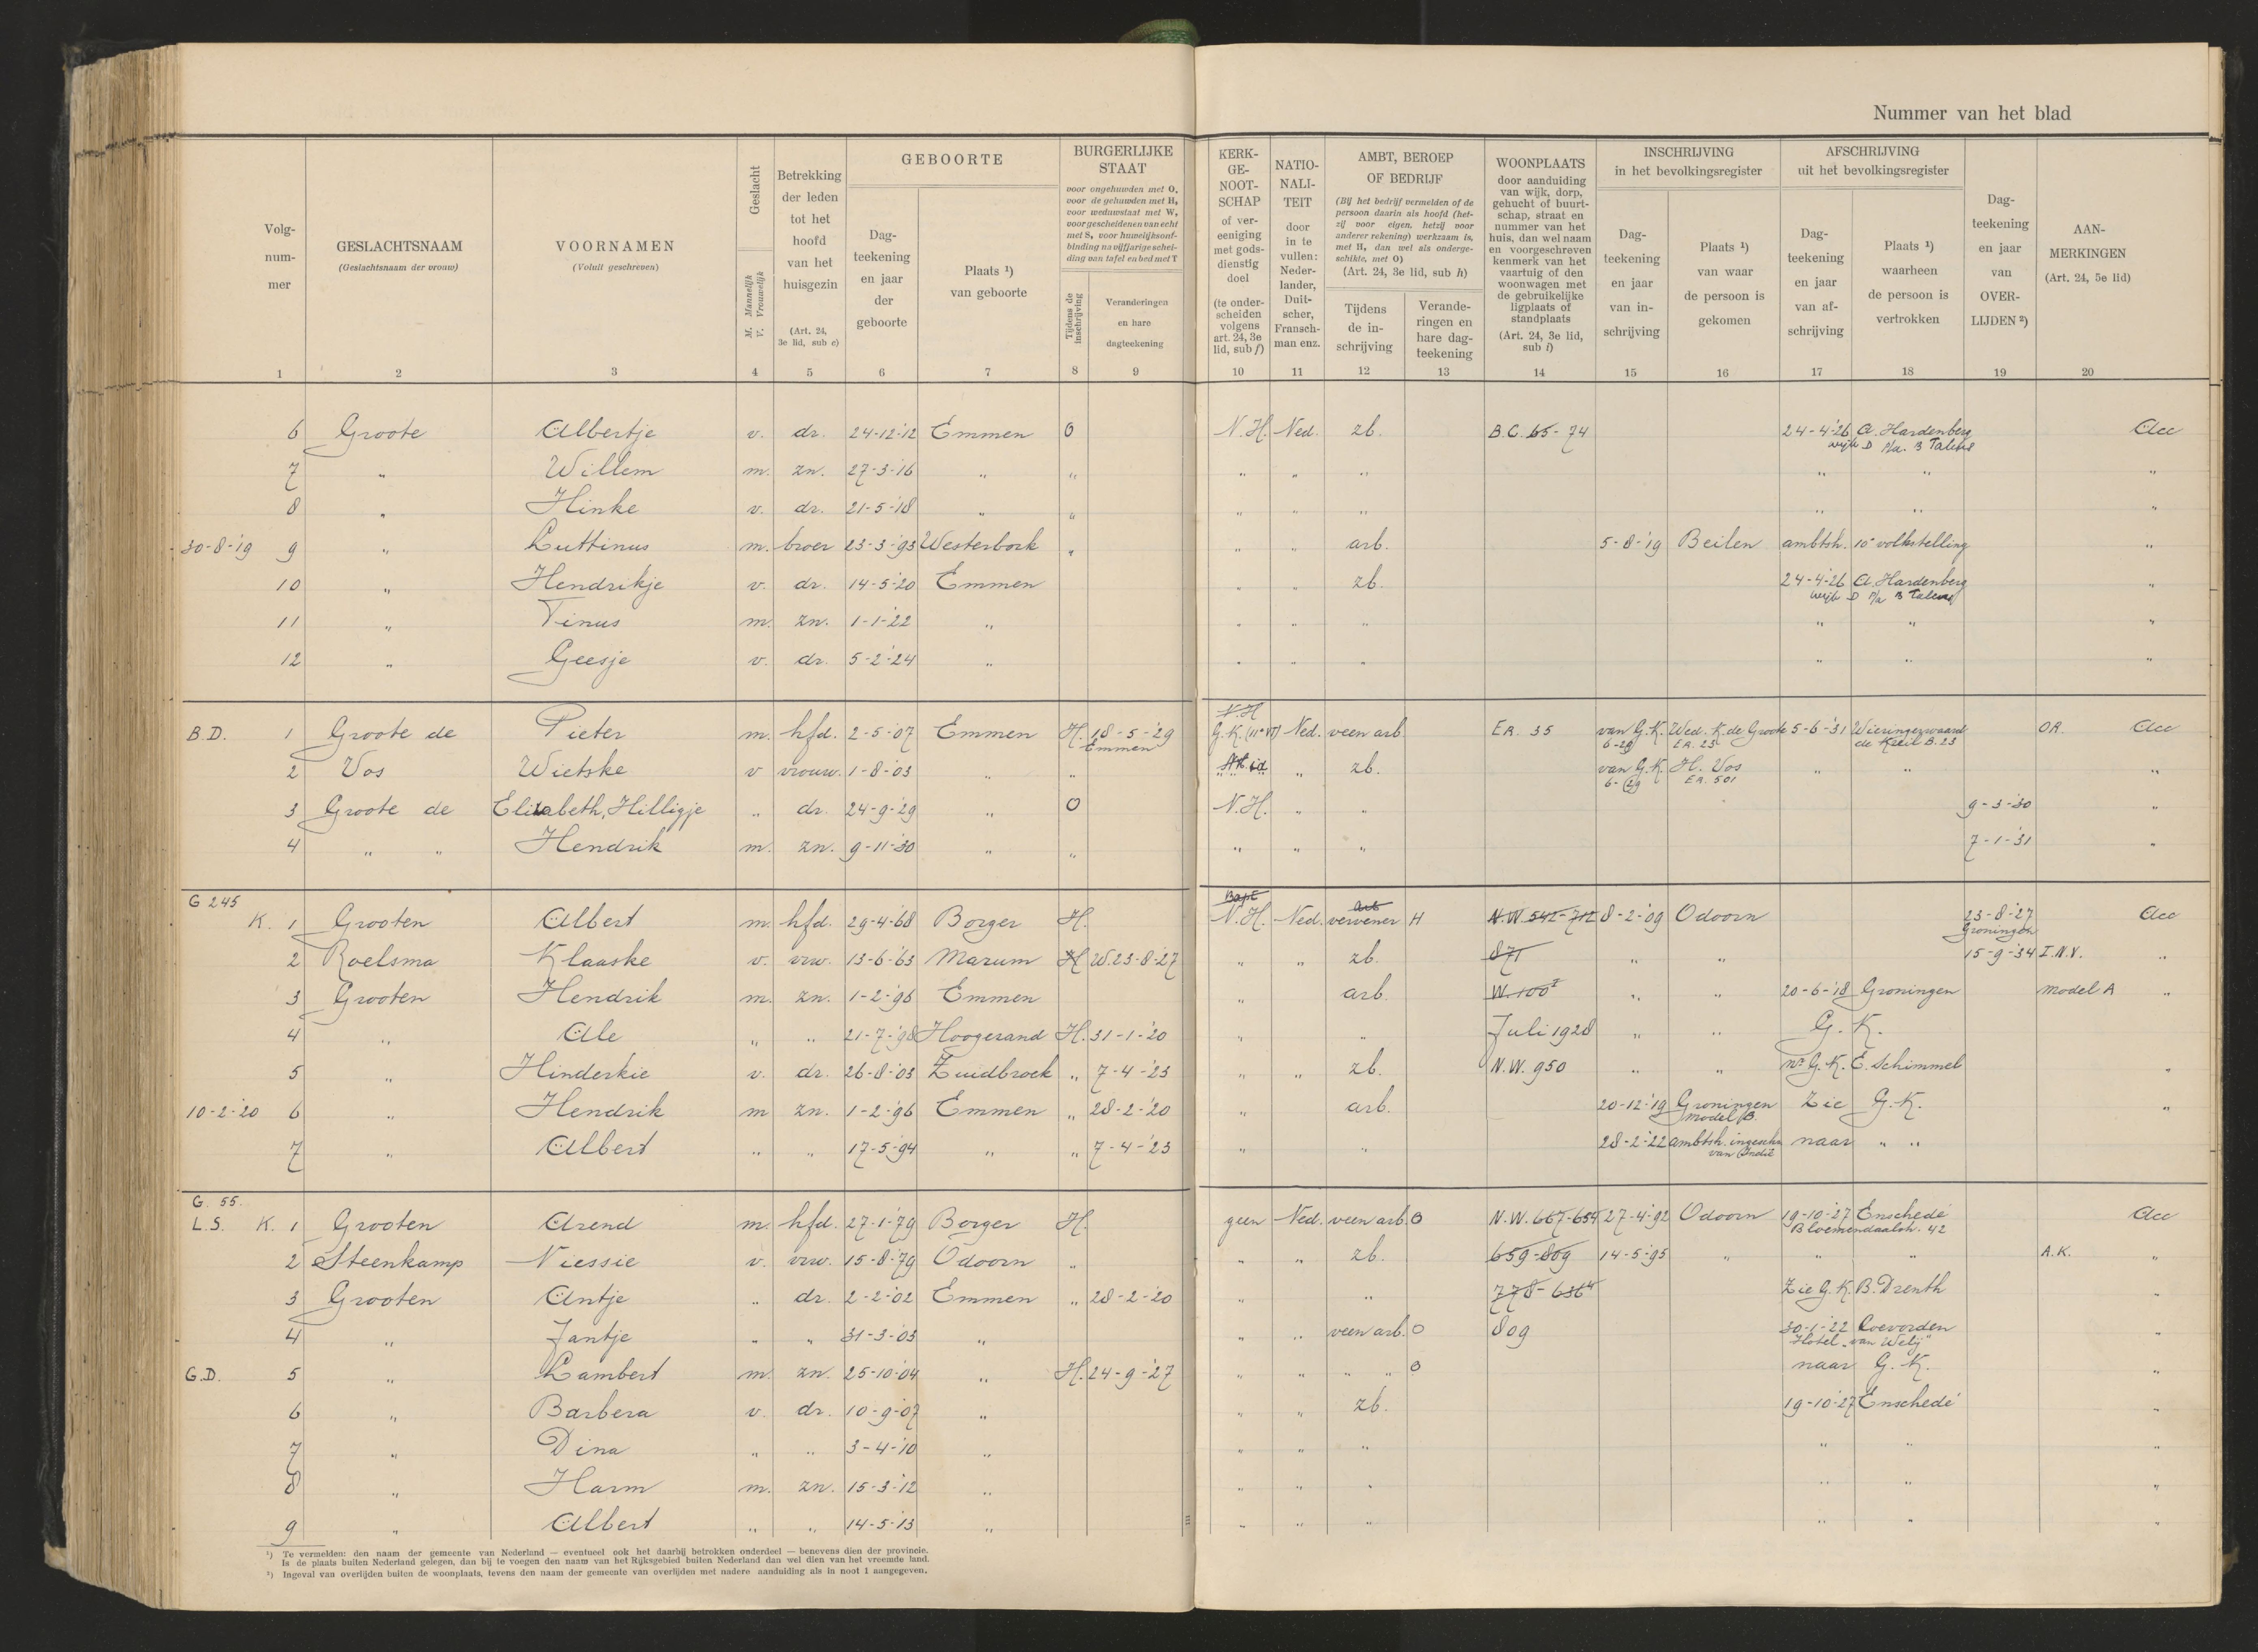 Nummer van het blad
Volg-nummer
GESLACHTSNAAM
(Geslachtsnaam der vrouw)
VOORNAMEN
(Voluit geschreven)
Geslacht
M. Mannelijk
V. Vrouwelijk
Betrekking der leden tot het hoofd van het huisgezin
(Art. 24, 3e lid, sub c)
GEBOORTE
Dag-teekening en jaar der geboorte
Plaats ¹) van geboorte
BURGERLIJKE STAAT
voor ongehuwden met O, voor de gehuwden met H, voor weduwstaat met W, voor gescheidenen van echt met S, voor huwelijksontbinding na vijfjarige scheiding van tafel en bed met T
Tijdens de inschrijving
Veranderingen en hare dagteekening
KERK-GE-NOOT-SCHAP
of ver-eeniging met gods-dienstig doel
(te onder-scheiden volgens art. 24, 3e lid, sub f)
NATIO-NALI-TEIT
door in te vullen: Neder-lander, Duit-scher, Fransch-man enz.
AMBT, BEROEP OF BEDRIJF
(Bij het bedrijf vermelden of de persoon daarin als hoofd (het-zij voor eigen, hetzij voor anderer rekening) werkzaam is, met H, dan wel als onderge-schikte, met O)
(Art. 24, 3e lid, sub h)
Tijdens de in-schrijving
Verande-ringen en hare dag-teekening
WOONPLAATS
door aanduiding van wijk, dorp, gehucht of buurt-schap, straat en nummer van het huis, dan wel naam en voorgeschreven kenmerk van het vaartuig of den woonwagen met de gebruikelijke ligplaats of standplaats
(Art. 24, 3e lid, sub i)
INSCHRIJVING in het bevolkingsregister
Dag-teekening en jaar van in-schrijving
Plaats ¹) van waar de persoon is gekomen
AFSCHRIJVING uit het bevolkingsregister
Dag-teekening en jaar van af-schrijving
Plaats ¹) waarheen de persoon is vertrokken
Dag-teekening en jaar van OVER-LIJDEN ²)
AAN-MERKINGEN
(Art. 24, 5e lid)
1 2 3 4 5 6 7 8 9 10 11 12 13 14 15 16 17 18 19 20
6 Groote Albertje v. dr. 24-12-'12 Emmen O N.H. Ned. zb. B.C. 65-74 24-4-'26 A. Hardenberg Acc
wijk D p/a. B Talens
7 „ Willem m. zn. 27-3-'16 „ „ „ „ „ „ „ „
8 „ Hinke v. dr. 21-5-'18 „ „ „ „ „ „ „ „
30-8-'19 9 „ Luttinus m. broer 23-3-'93 Westerbork „ „ „ arb. 5-8-'19 Beilen ambtsh. 10e volkstelling „
10 „ Hendrikje v. dr. 14-5-'20 Emmen „ „ zb. 24-4-'26 A. Hardenberg „
wijk D p/a B Talens
11 „ Tinus m. zn. 1-1-'22 „ „ „ „ „ „ „
12 „ Geesje v. dr. 5-2-'24 „ „ „ „ „ „ „
N.H
B.D. 1 Groote de Pieter m. hfd. 2-5-'07 Emmen H. 18-5-'29 G.K. Ned. veen arb. EA. 35 van G.K. Wed. K. de Groote 5-6-'31 Wieringerwaard O.R. Acc
Emmen 6-29 EA. 23 de Keeil B. 23
2 Vos Wietske v vrouw. 1-8-'03 „ „ „ zb. van G.K. H. Vos „ „ „
6-29 EA. 501
3 Groote de Elizabeth, Hilligje „ dr. 24-9-'29 „ O N.H. „ „ 9-3-'30 „
4 „ „ Hendrik m. zn. 9-11-'30 „ „ „ „ „ 7-1-'31 „
G 245 Bapt arb
K. 1 Grooten Albert m. hfd. 29-4-'68 Borger H. N.H. Ned. vervener H N.W. 542-712 8-2-'09 Odoorn 23-8-'27 Acc
Groningen
2 Roelsma Klaaske v. vrw. 13-6-'63 Marum H W.23-8-'27 „ „ zb. 871 „ „ 15-9-'34 I.N.V. „
3 Grooten Hendrik m. zn. 1-2-'96 Emmen „ arb. W. 100² „ „ 20-6-'18 Groningen model A „
4 „ Ale „ „ 21-7-'98 Hoogezand H. 31-1-'20 „ „ Juli 1928 „ „ G. K.
5 „ Hinderkie v. dr. 26-8-'03 Zuidbroek „ 7-4-'23 „ „ zb. N.W. 950 „ „ nr G.K. E. Schimmel „
10-2-'20 6 „ Hendrik m zn. 1-2-'96 Emmen „ 28-2-'20 „ arb. 20-12-'19 Groningen Zie G.K. „
model B.
7 „ Albert „ „ 17-5-'94 „ „ 7-4-'23 „ „ 28-2-'22 ambtsh. ingeschr. naar „ „
van Indië
G. 55.
L.S. K. 1 Grooten Arend m. hfd. 27-1-'79 Borger H. geen Ned. veen arb. O N.W. 667-654 27-4-'92 Odoorn 19-10-'27 Enschedé Acc
Bloemendaalstr. 42
2 Steenkamp Niessie v. vrw. 15-8-'79 Odoorn „ „ „ zb. 659-809 14-5-'95 „ „ „ A.K. „
3 Grooten Antje „ dr. 2-2-'02 Emmen „ 28-2-'20 „ „ 778-636⁴ Zie G.K. B. Drenth „
4 „ Jantje „ „ 31-3-'03 „ „ „ veen arb. O 809 30-1-'22 Coevorden „
Hotel „van Wely"
G.D. 5 „ Lambert m. zn. 25-10-'04 „ H. 24-9-'27 „ „ „ „ O naar G.K. „
6 „ Barbera v. dr. 10-9-'07 „ „ „ zb. 19-10-'27 Enschedé „
7 „ Dina „ „ 3-4-'10 „ „ „ „ „ „ „
8 „ Harm m. zn. 15-3-'12 „ „ „ „ „ „ „
9 „ Albert „ „ 14-5-'13 „ „ „ „ „ „ „
¹) Te vermelden: den naam der gemeente van Nederland — eventueel ook het daarbij betrokken onderdeel — benevens dien der provincie.
Is de plaats buiten Nederland gelegen, dan bij te voegen den naam van het Rijksgebied buiten Nederland dan wel dien van het vreemde land.
²) Ingeval van overlijden buiten de woonplaats, tevens den naam der gemeente van overlijden met nadere aanduiding als in noot 1 aangegeven.